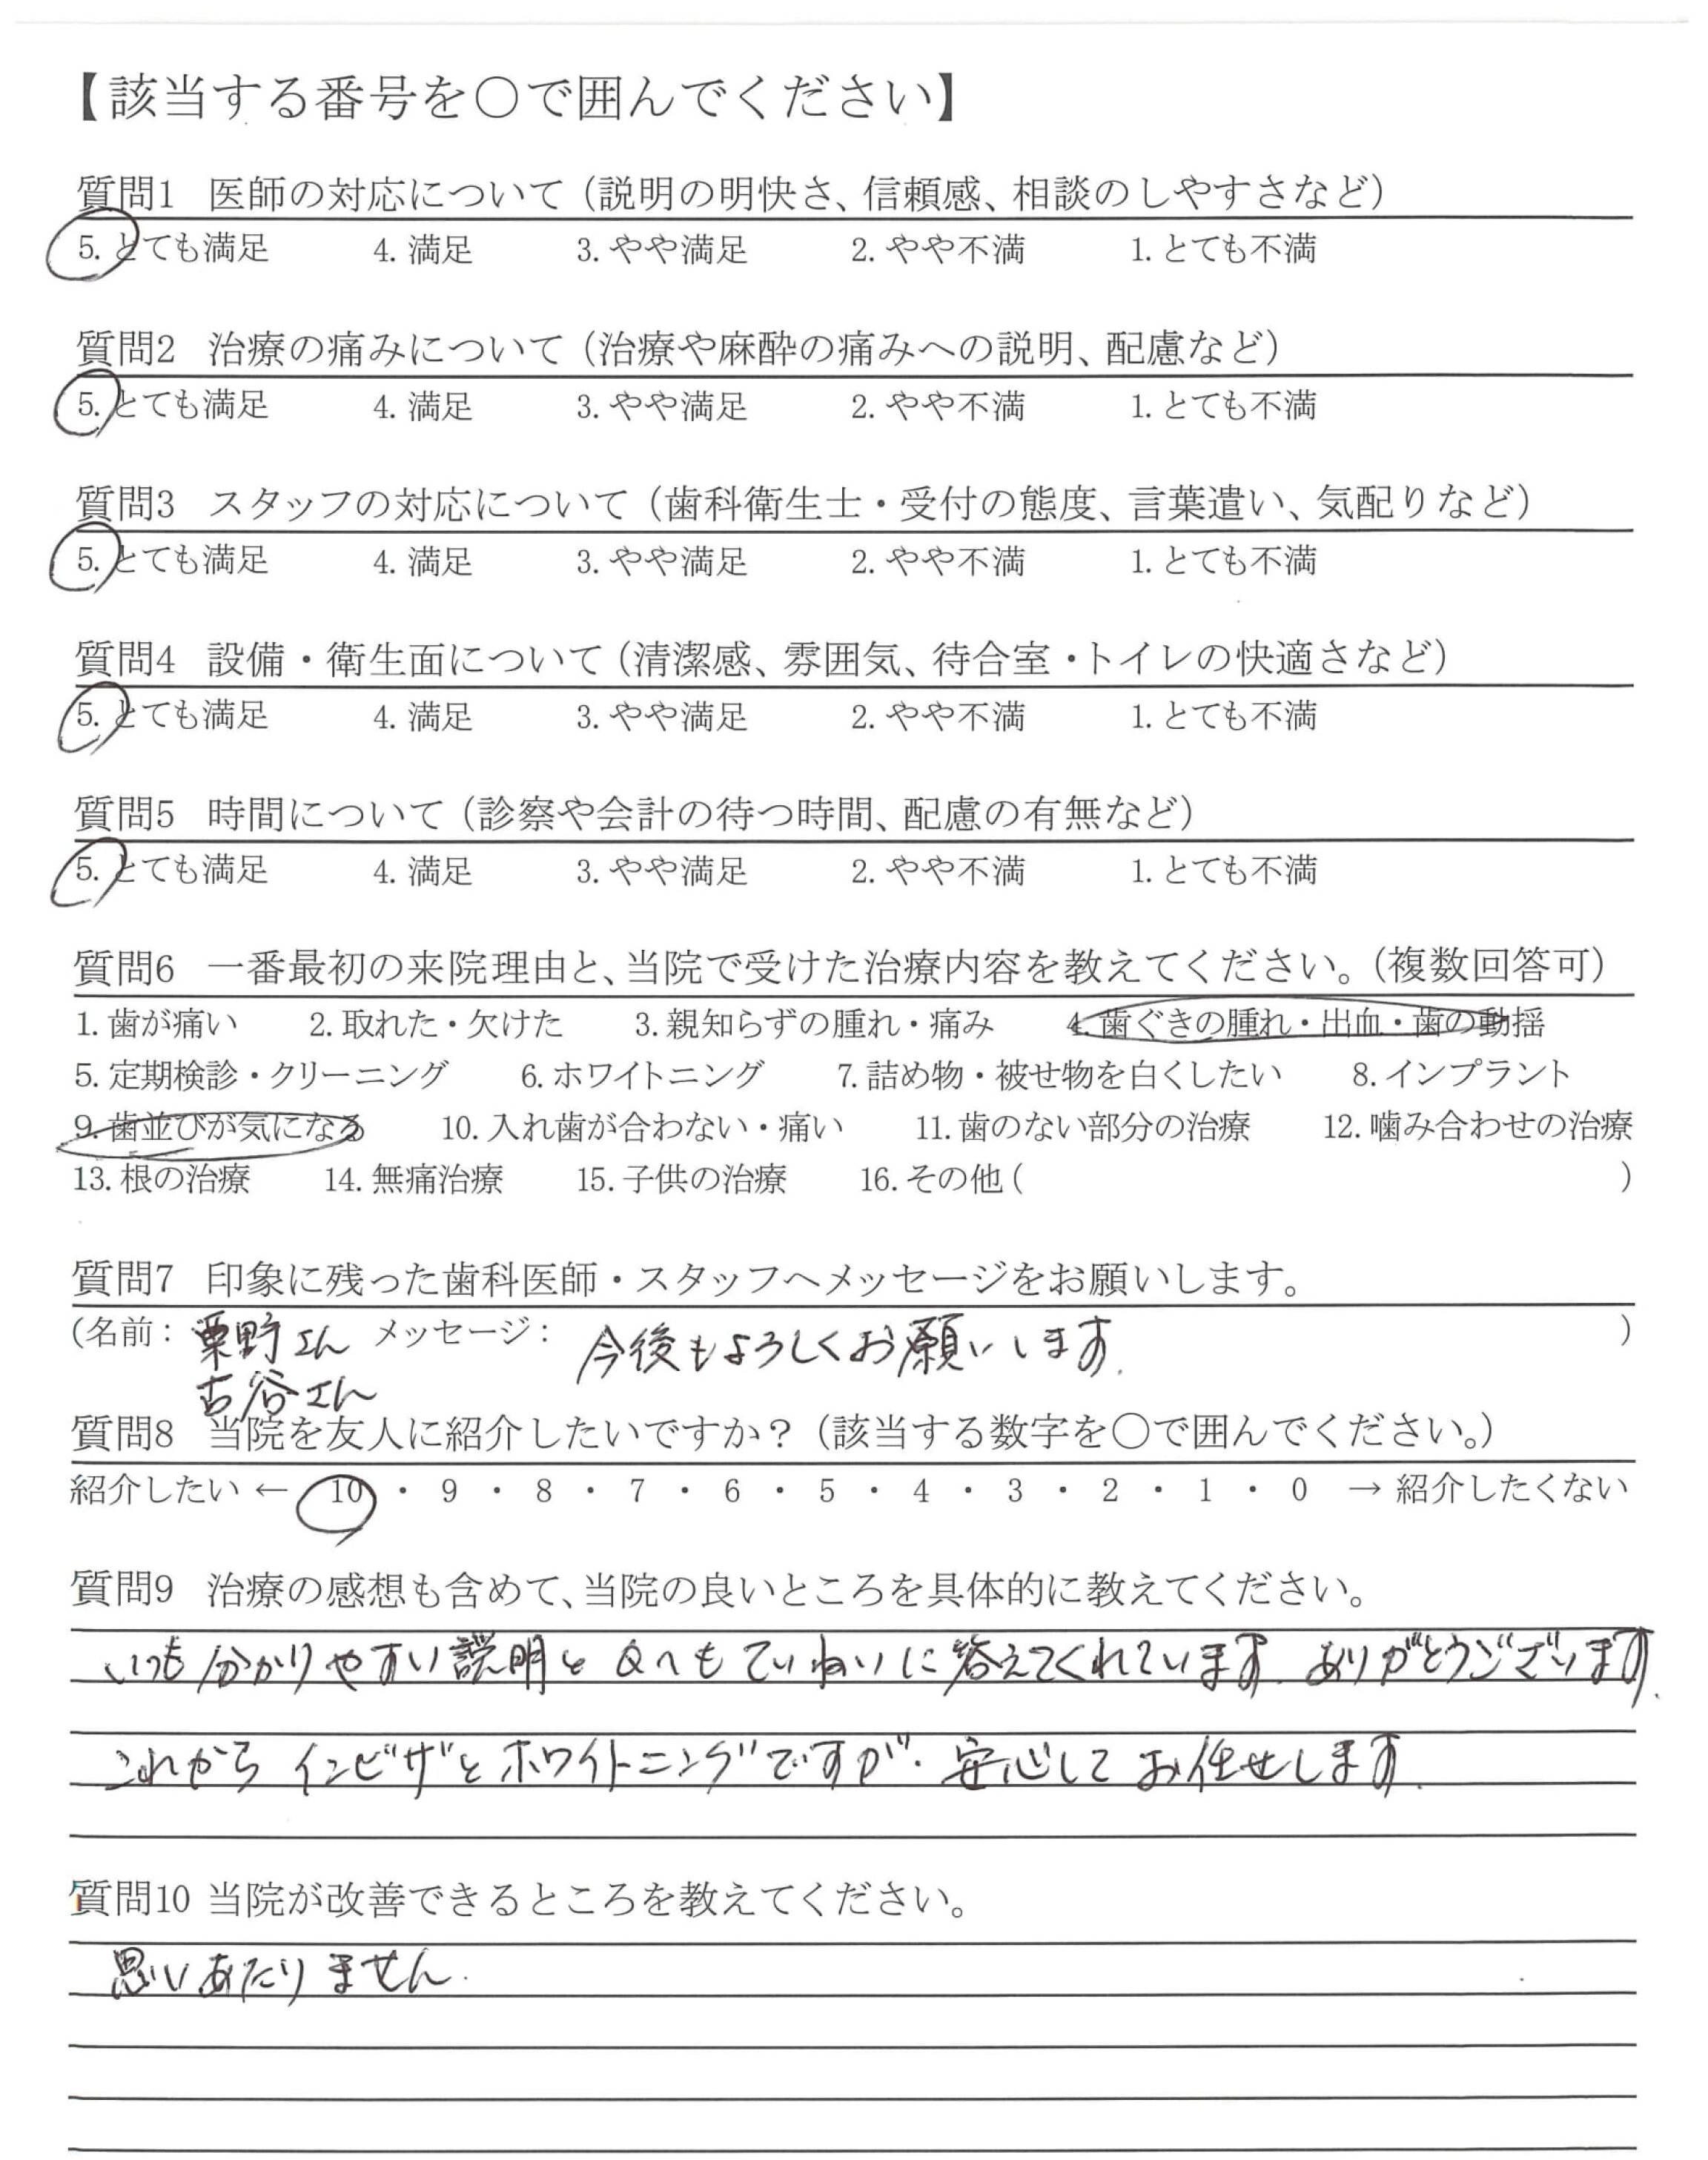 【該当する番号を〇で囲んでください】
質問1 医師の対応について（説明の明快さ、信頼感、相談のしやすさなど）
5. とても満足 4. 満足 3. やや満足 2. やや不満 1. とても不満
質問2 治療の痛みについて（治療や麻酔の痛みへの説明、配慮など）
5. とても満足 4. 満足 3. やや満足 2. やや不満 1. とても不満
質問3 スタッフの対応について（歯科衛生士・受付の態度、言葉遣い、気配りなど）
5. とても満足 4. 満足 3. やや満足 2. やや不満 1. とても不満
質問4 設備・衛生面について（清潔感、雰囲気、待合室・トイレの快適さなど）
5. とても満足 4. 満足 3. やや満足 2. やや不満 1. とても不満
質問5 時間について（診察や会計の待つ時間、配慮の有無など）
5. とても満足 4. 満足 3. やや満足 2. やや不満 1. とても不満
質問6 一番最初の来院理由と、当院で受けた治療内容を教えてください。（複数回答可）
1. 歯が痛い 2. 取れた・欠けた 3. 親知らずの腫れ・痛み 4. 歯ぐきの腫れ・出血・歯の動揺
5. 定期検診・クリーニング 6. ホワイトニング 7. 詰め物・被せ物を白くしたい 8. インプラント
9. 歯並びが気になる 10. 入れ歯が合わない・痛い 11. 歯のない部分の治療 12. 噛み合わせの治療
13. 根の治療 14. 無痛治療 15. 子供の治療 16. その他（ ）
質問7 印象に残った歯科医師・スタッフへメッセージをお願いします。
（名前：栗野さん メッセージ：今後もよろしくお願いします. ）
古谷さん
質問8 当院を友人に紹介したいですか？（該当する数字を〇で囲んでください。）
紹介したい ← 10 ・ 9 ・ 8 ・ 7 ・ 6 ・ 5 ・ 4 ・ 3 ・ 2 ・ 1 ・ 0 → 紹介したくない
質問9 治療の感想も含めて、当院の良いところを具体的に教えてください。
いつも分かりやすい説明と Qへもていねいに答えてくれています. ありがとうございます.
これから インビザとホワイトニングですが. 安心して お任せします.
質問10 当院が改善できるところを教えてください。
思いあたりません.